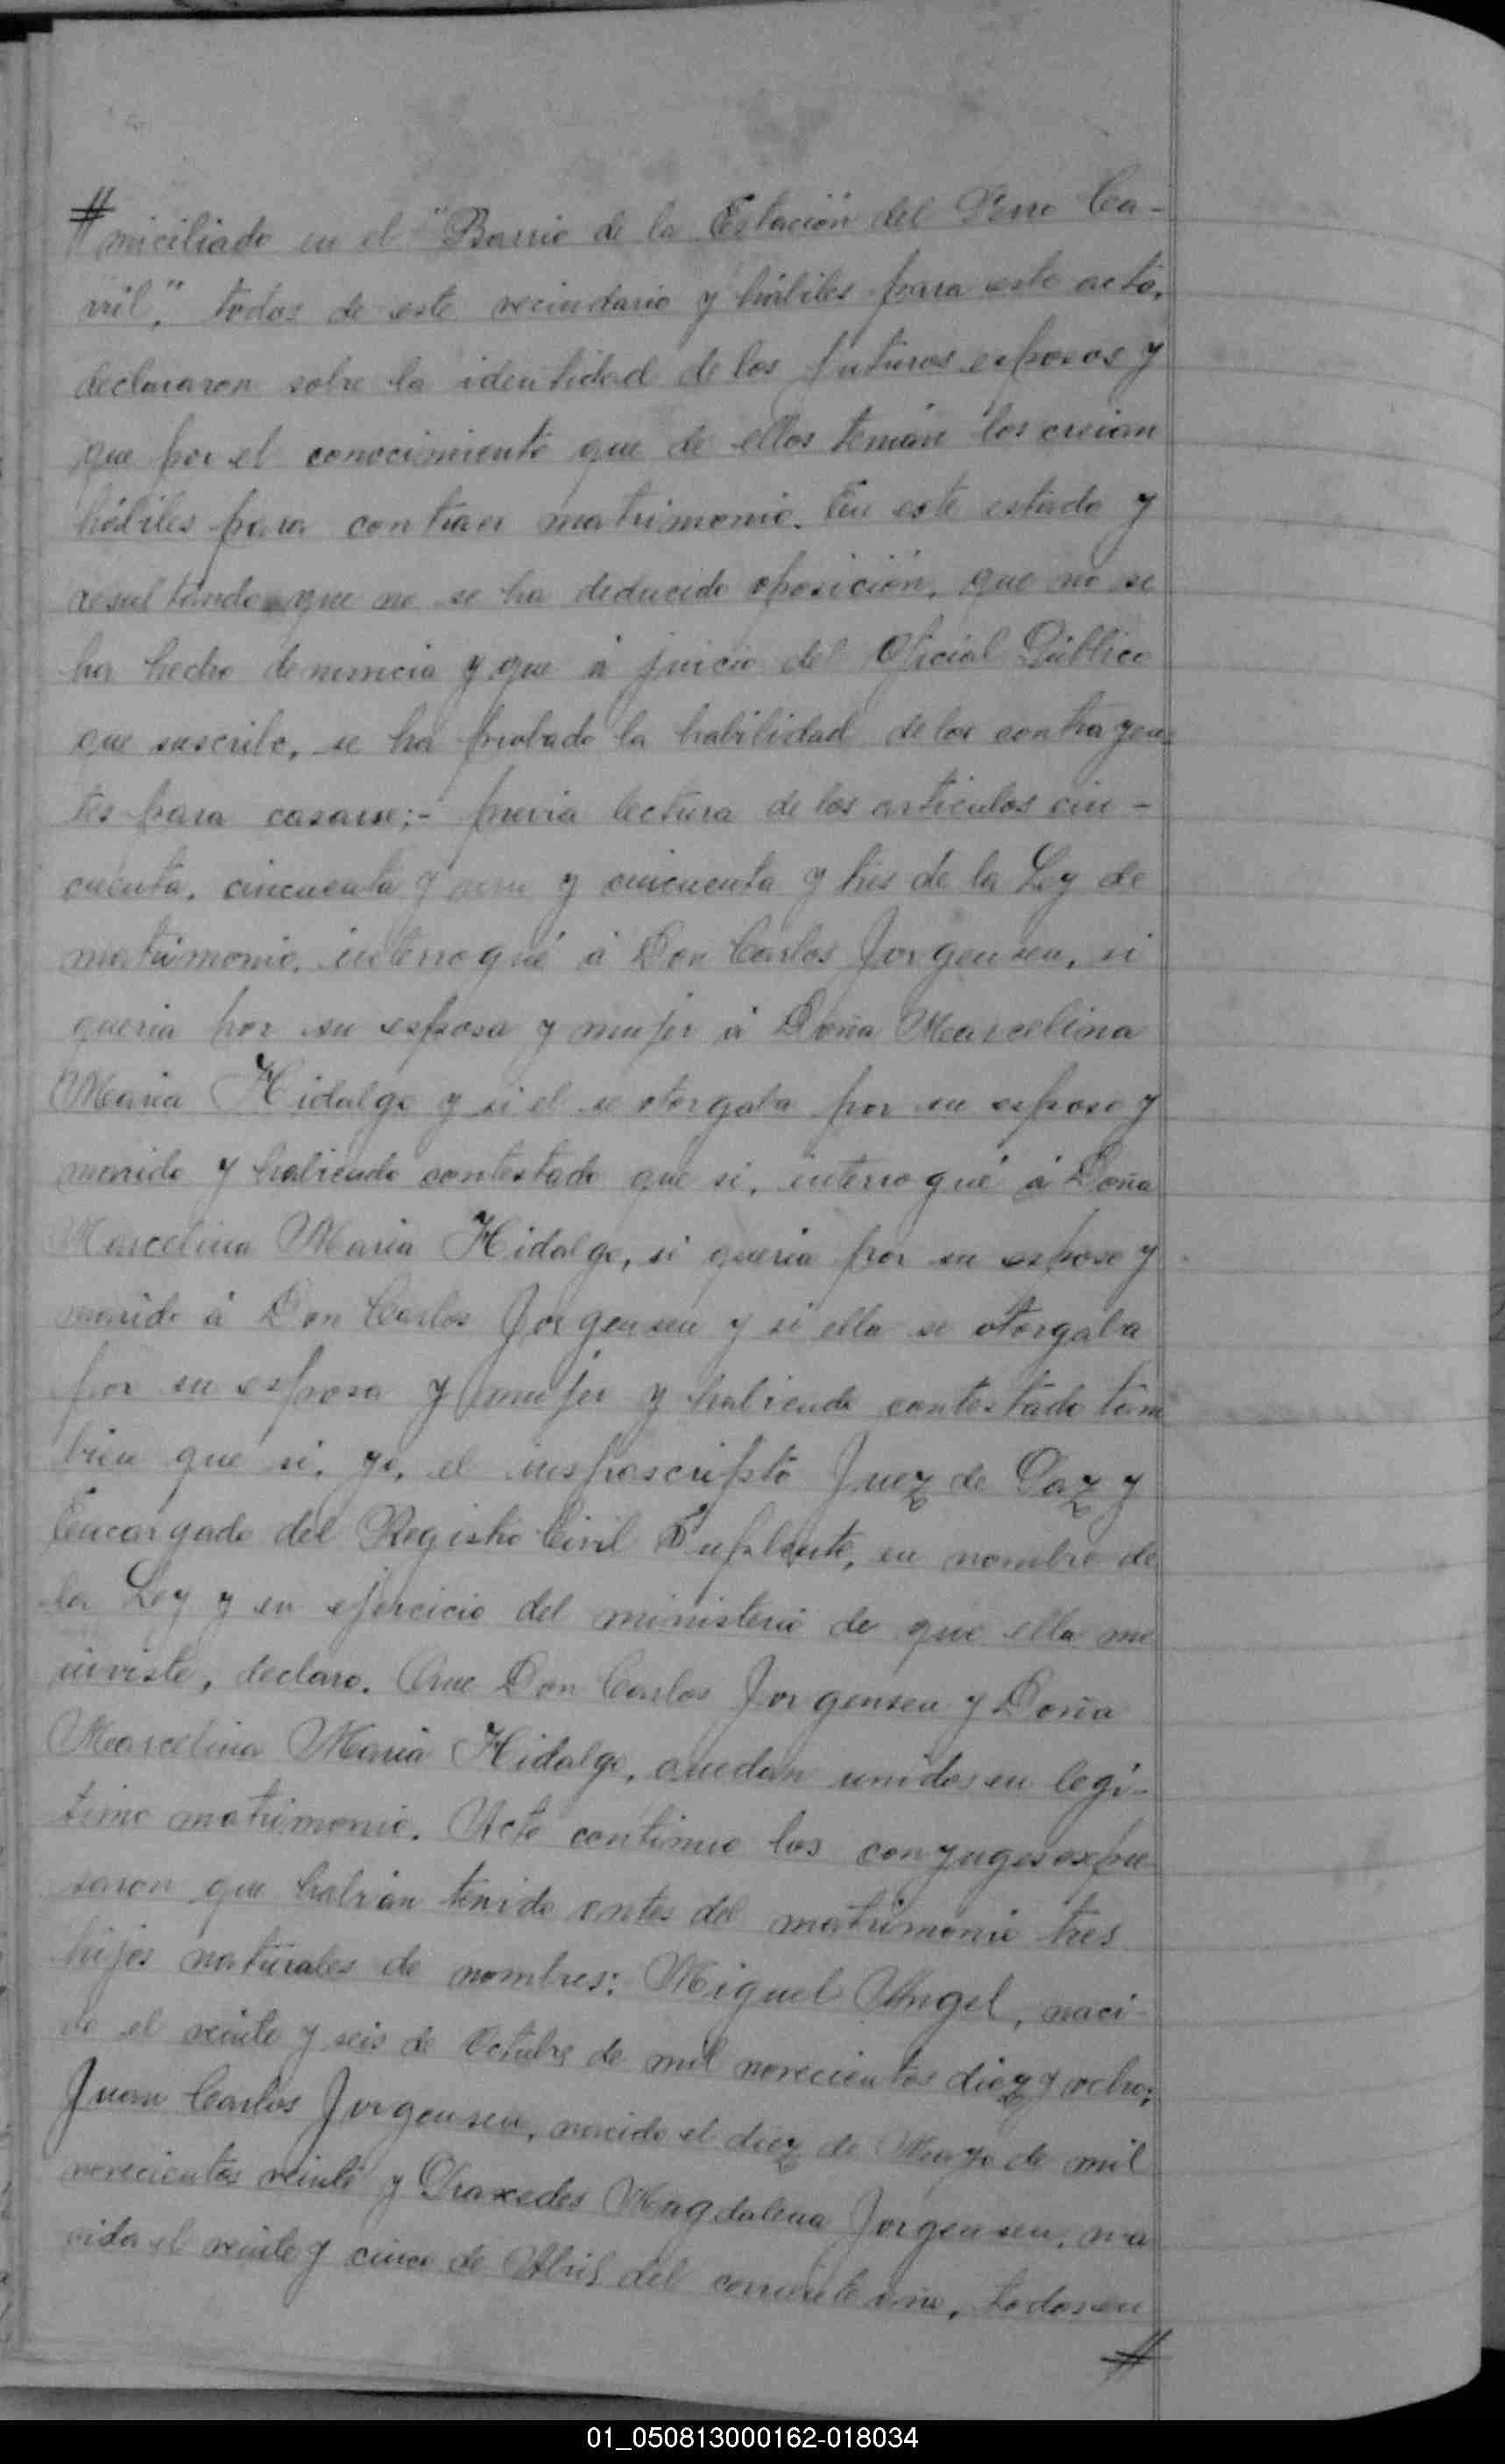 # miciliado en el "Barrio de la Estación del Ferro Ca-
rril," todos de este vecindario y hábiles para este acto,
declararon sobre la identidad de los futuros esposos y
que por el conocimiento que de ellos tenían los creian
hábiles para contraer matrimonio. En este estado y
resultando que no se ha deducido oposición, que no se
ha hecho denuncia y que á juicio del Oficial Público
que suscribe, se ha probado la habilidad de los contrayen-
tes para casarse;- previa lectura de los artículos cin-
cuenta, cincuenta y uno y cincuenta y tres de la Ley de
matrimonio, interrogué á Don Carlos Jorgensen, si
queria por su esposa y mujer á Doña Marcelina
Maria Hidalgo y si el se otorgaba por su esposo y
marido y habiendo contestado que si, interrogué á Doña
Marcelina Maria Hidalgo, si queria por su esposo y
marido á Don Carlos Jorgensen y si ella se otorgaba
por su esposa y mujer y habiendo contestado tam
bien que si, yo, el infrascripto Juez de Paz y
Encargado del Registro Civil Suplente, en nombre de
la Ley y en ejercicio del ministerio de que ella me
inviste, declaro. Que Don Carlos Jorgensen y Doña
Marcelina Maria Hidalgo, quedan unidos en legi-
timo matrimonio. Acto continuo los conyuges expu-
saron que habían tenido antes del matrimonio tres
hijos naturales de nombres: Miguel Angel, naci-
do el veinte y seis de Octubre de mil novecientos diez y ocho;
Juan Carlos Jorgensen, nacido el diez de Mayo de mil
novecientos veinte y Praxedes Magdalena Jorgensen, na
cida el veinte y cinco de Abril del corriente año, todos en
#
01_050813000162-018034